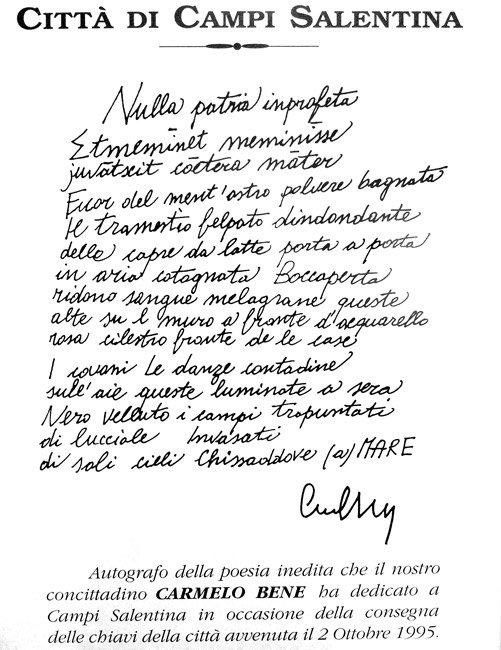 CITTÀ DI CAMPI SALENTINA
Nulla patria inprofeta
Etmemĭnet meminĭsse
juvătseit coĕtera măter
Fuor del ment'astro polvere bagnata
Il tramestio felpato dindondante
delle capre da latte porta a porta
in aria cotognata Boccaperta
ridono sangue melagrane queste
alte su l muro a fronte d'acquarello
rosa cilestro fronte de le case
I covani Le danze contadine
sull'aie queste luminate a sera
Nero velluto i campi trapuntati
di lucciole Invasati
di soli cieli Chissaddove (a) MARE
Autografo della poesia inedita che il nostro
concittadino CARMELO BENE ha dedicato a
Campi Salentina in occasione della consegna
delle chiavi della città avvenuta il 2 Ottobre 1995.